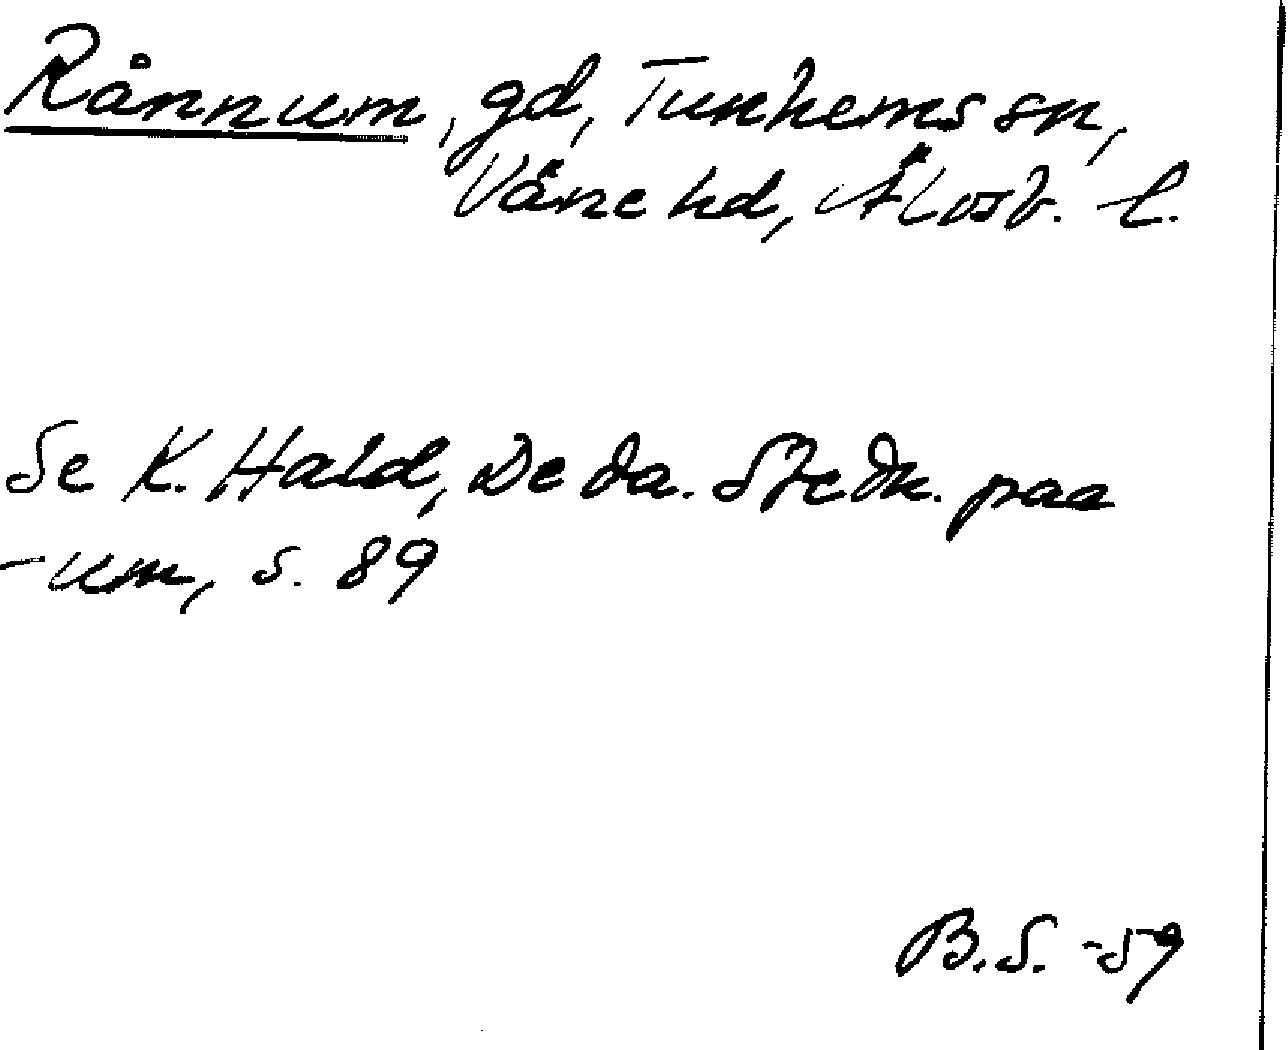 Rånnum, gd, Tunhems sn,
Väne hd, Älvsb. l.
Se K. Hald, De da. Stedn. paa
-um, s. 89
B.S. -59